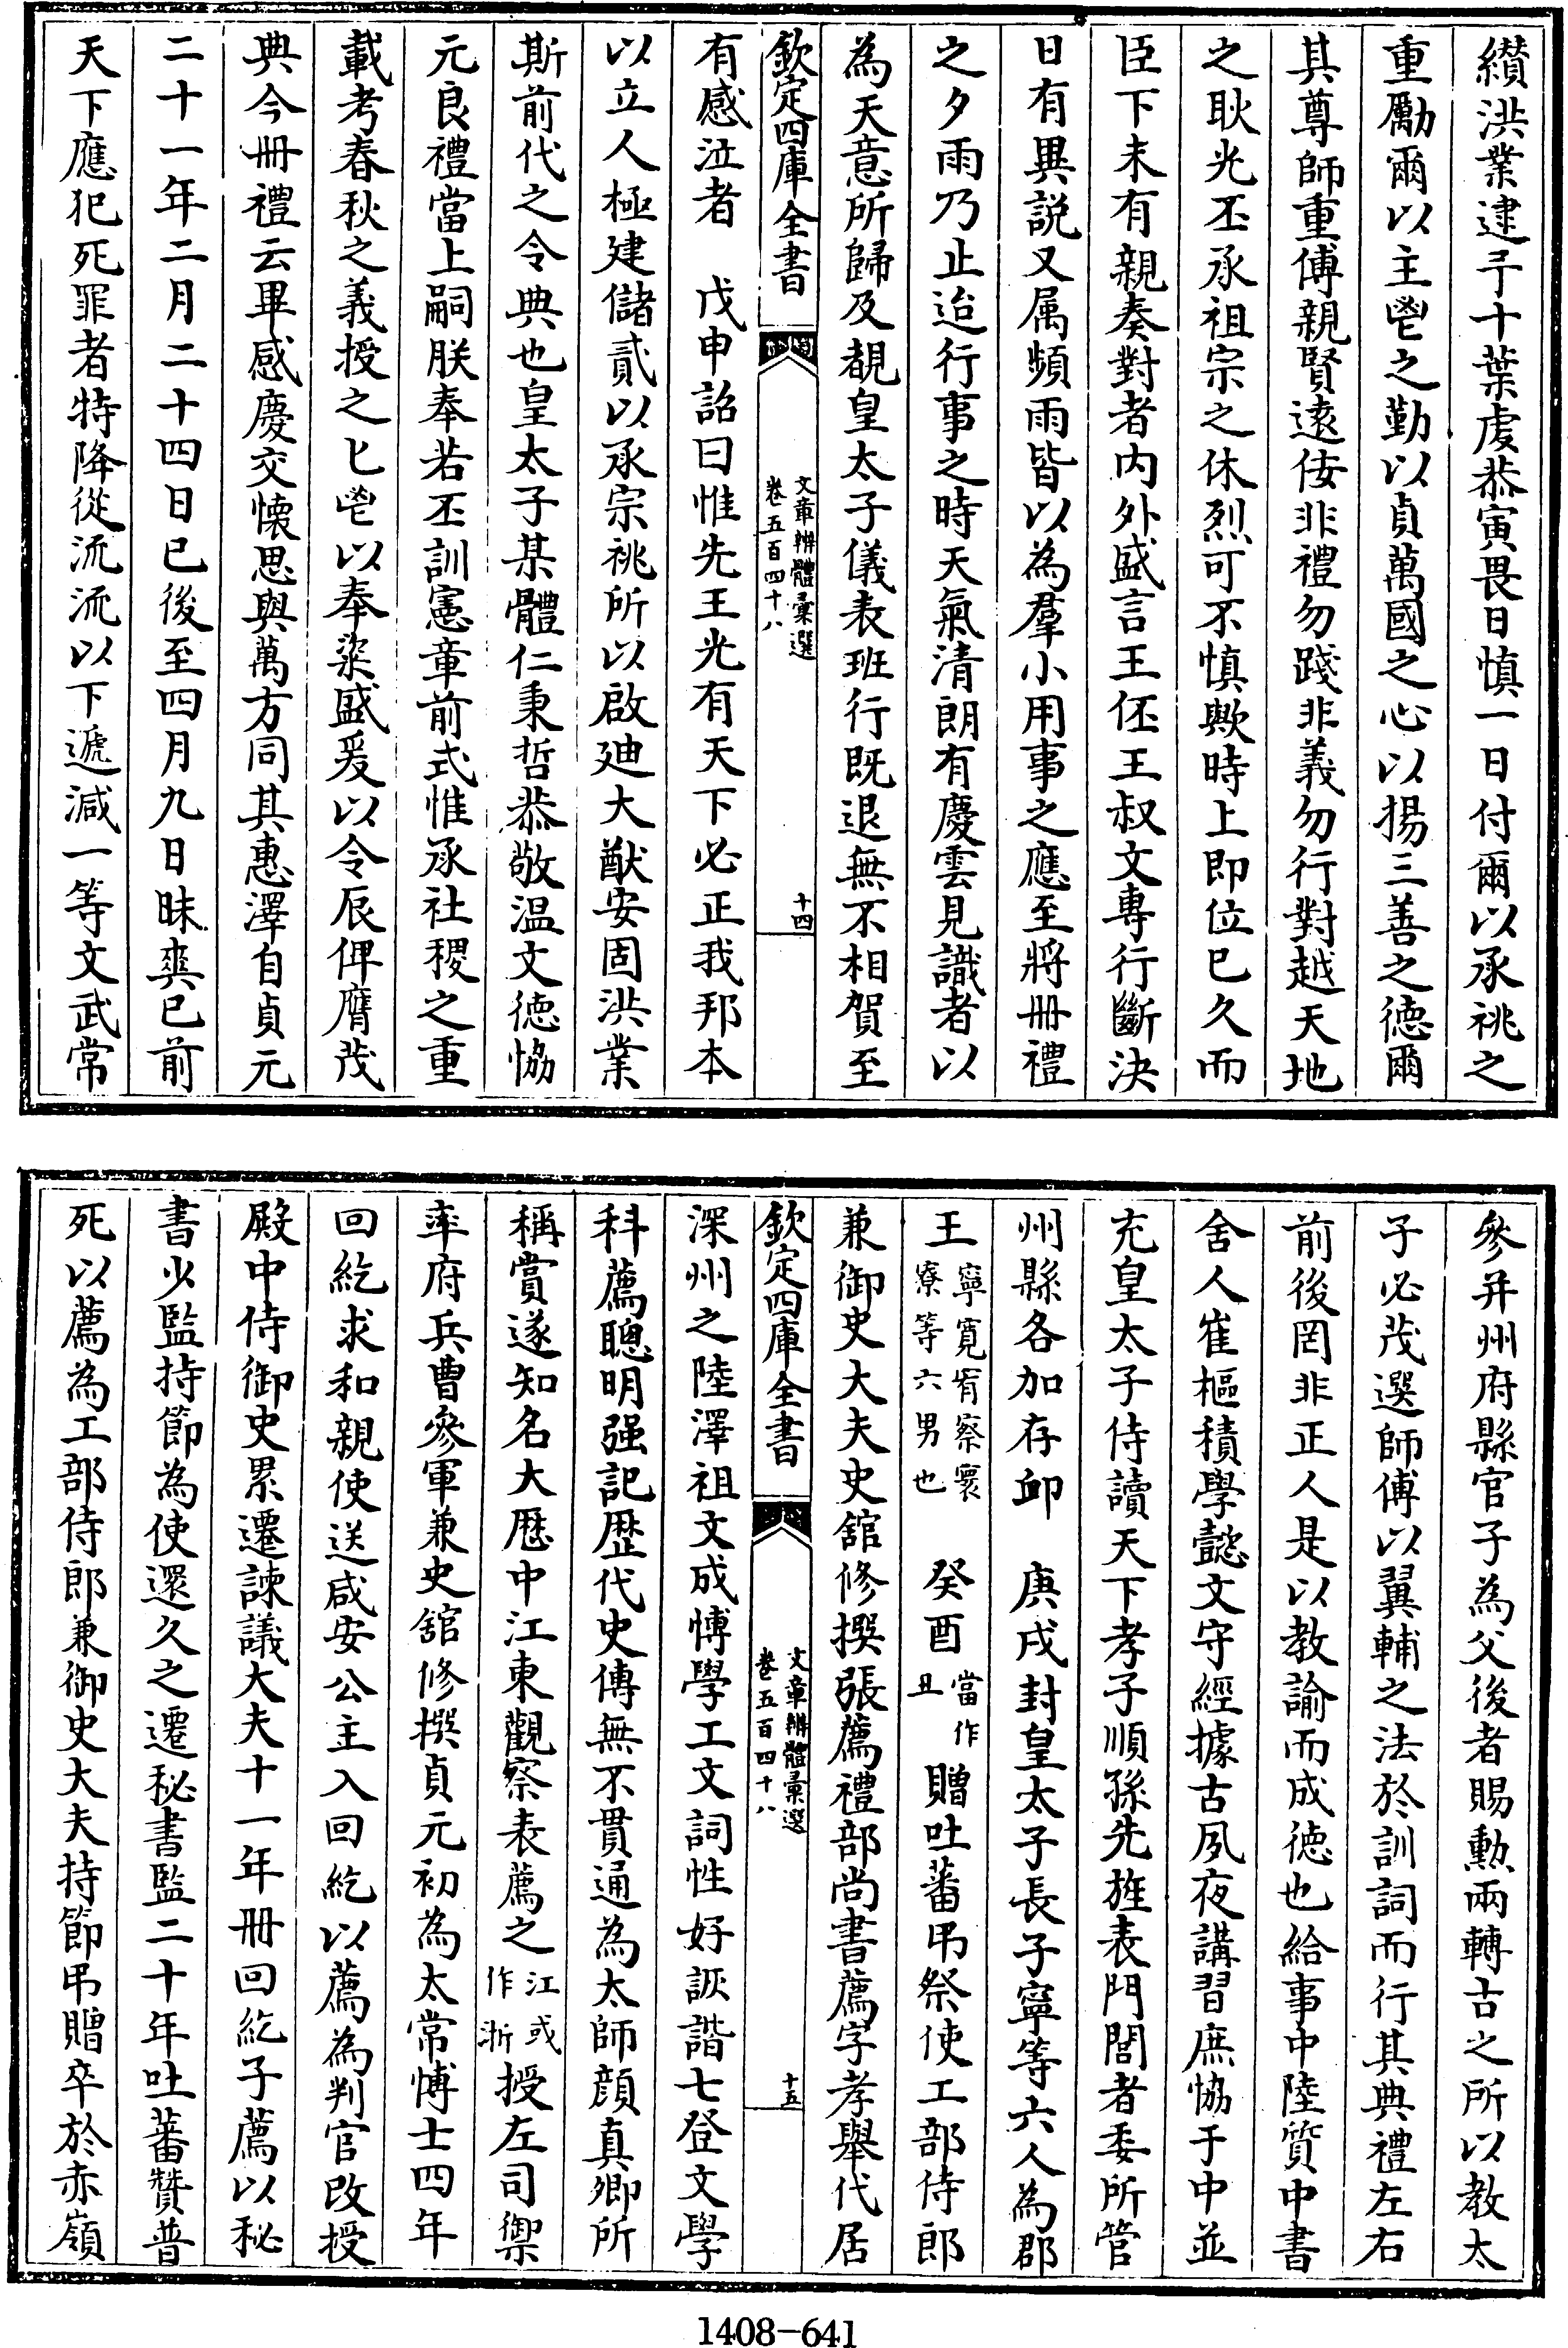 纉洪業逮于十葉虔恭寅畏日慎一日付爾以承祧之
重勵爾以主鬯之勤以貞萬國之心以揚三善之徳爾
其尊師重傅親賢逺佞非禮勿踐非義勿行對越天地
之耿光丕承祖宗之休烈可不慎歟時上即位已久而
臣下未有親奏對者内外盛言王伾王叔文專行斷決
日有異説又属頻雨皆以為羣小用事之應至將冊禮
之夕雨乃止迨行事之時天氣清朗有慶雲見識者以
為天意所歸及覩皇太子儀表班行既退無不相賀至
欽定四庫全書
文章辨體彙選
卷五百四十八
十四
有感泣者　戊申詔曰惟先王光有天下必正我邦本
以立人極建儲貳以承宗祧所以啟廸大猷安固洪業
斯前代之令典也皇太子某體仁秉哲恭敬温文徳恊
元良禮當上嗣朕奉若丕訓憲章前式惟承社稷之重
載考春秋之義授之匕鬯以奉粢盛爰以令辰俾膺茂
典今冊禮云畢感慶交懐思與萬方同其惠澤自貞元
二十一年二月二十四日已後至四月九日昧爽已前
天下應犯死罪者特降從流流以下遞減一等文武常
參并州府縣官子為父後者賜勲兩轉古之所以教太
子必茂選師傅以翼輔之法於訓詞而行其典禮左右
前後罔非正人是以教諭而成徳也給事中陸質中書
舍人崔樞積學懿文守經據古夙夜講習庶恊于中並
充皇太子侍讀天下孝子順孫先旌表門閭者委所管
州縣各加存䘏　庚戌封皇太子長子寧等六人為郡
王寧寛宥察寰寮等六男也　癸酉當作丑　贈吐蕃弔祭使工部侍郎
兼御史大夫史舘修撰張薦禮部尚書薦字孝舉代居
欽定四庫全書
文章辨體彙選
卷五百四十八
十五
深州之陸澤祖文成博學工文詞性好詼諧七登文學
科薦聰明强記歴代史傳無不貫通為太師顔真卿所
稱賞遂知名大厯中江東觀察表薦之江或作浙授左司禦
率府兵曹參軍兼史舘修撰貞元初為太常博士四年
回紇求和親使送咸安公主入回紇以薦為判官改授
殿中侍御史累遷諫議大夫十一年冊回紇子薦以秘
書少監持節為使還久之遷秘書監二十年吐蕃贊普
死以薦為工部侍郎兼御史大夫持節弔贈卒於赤嶺
1408-641